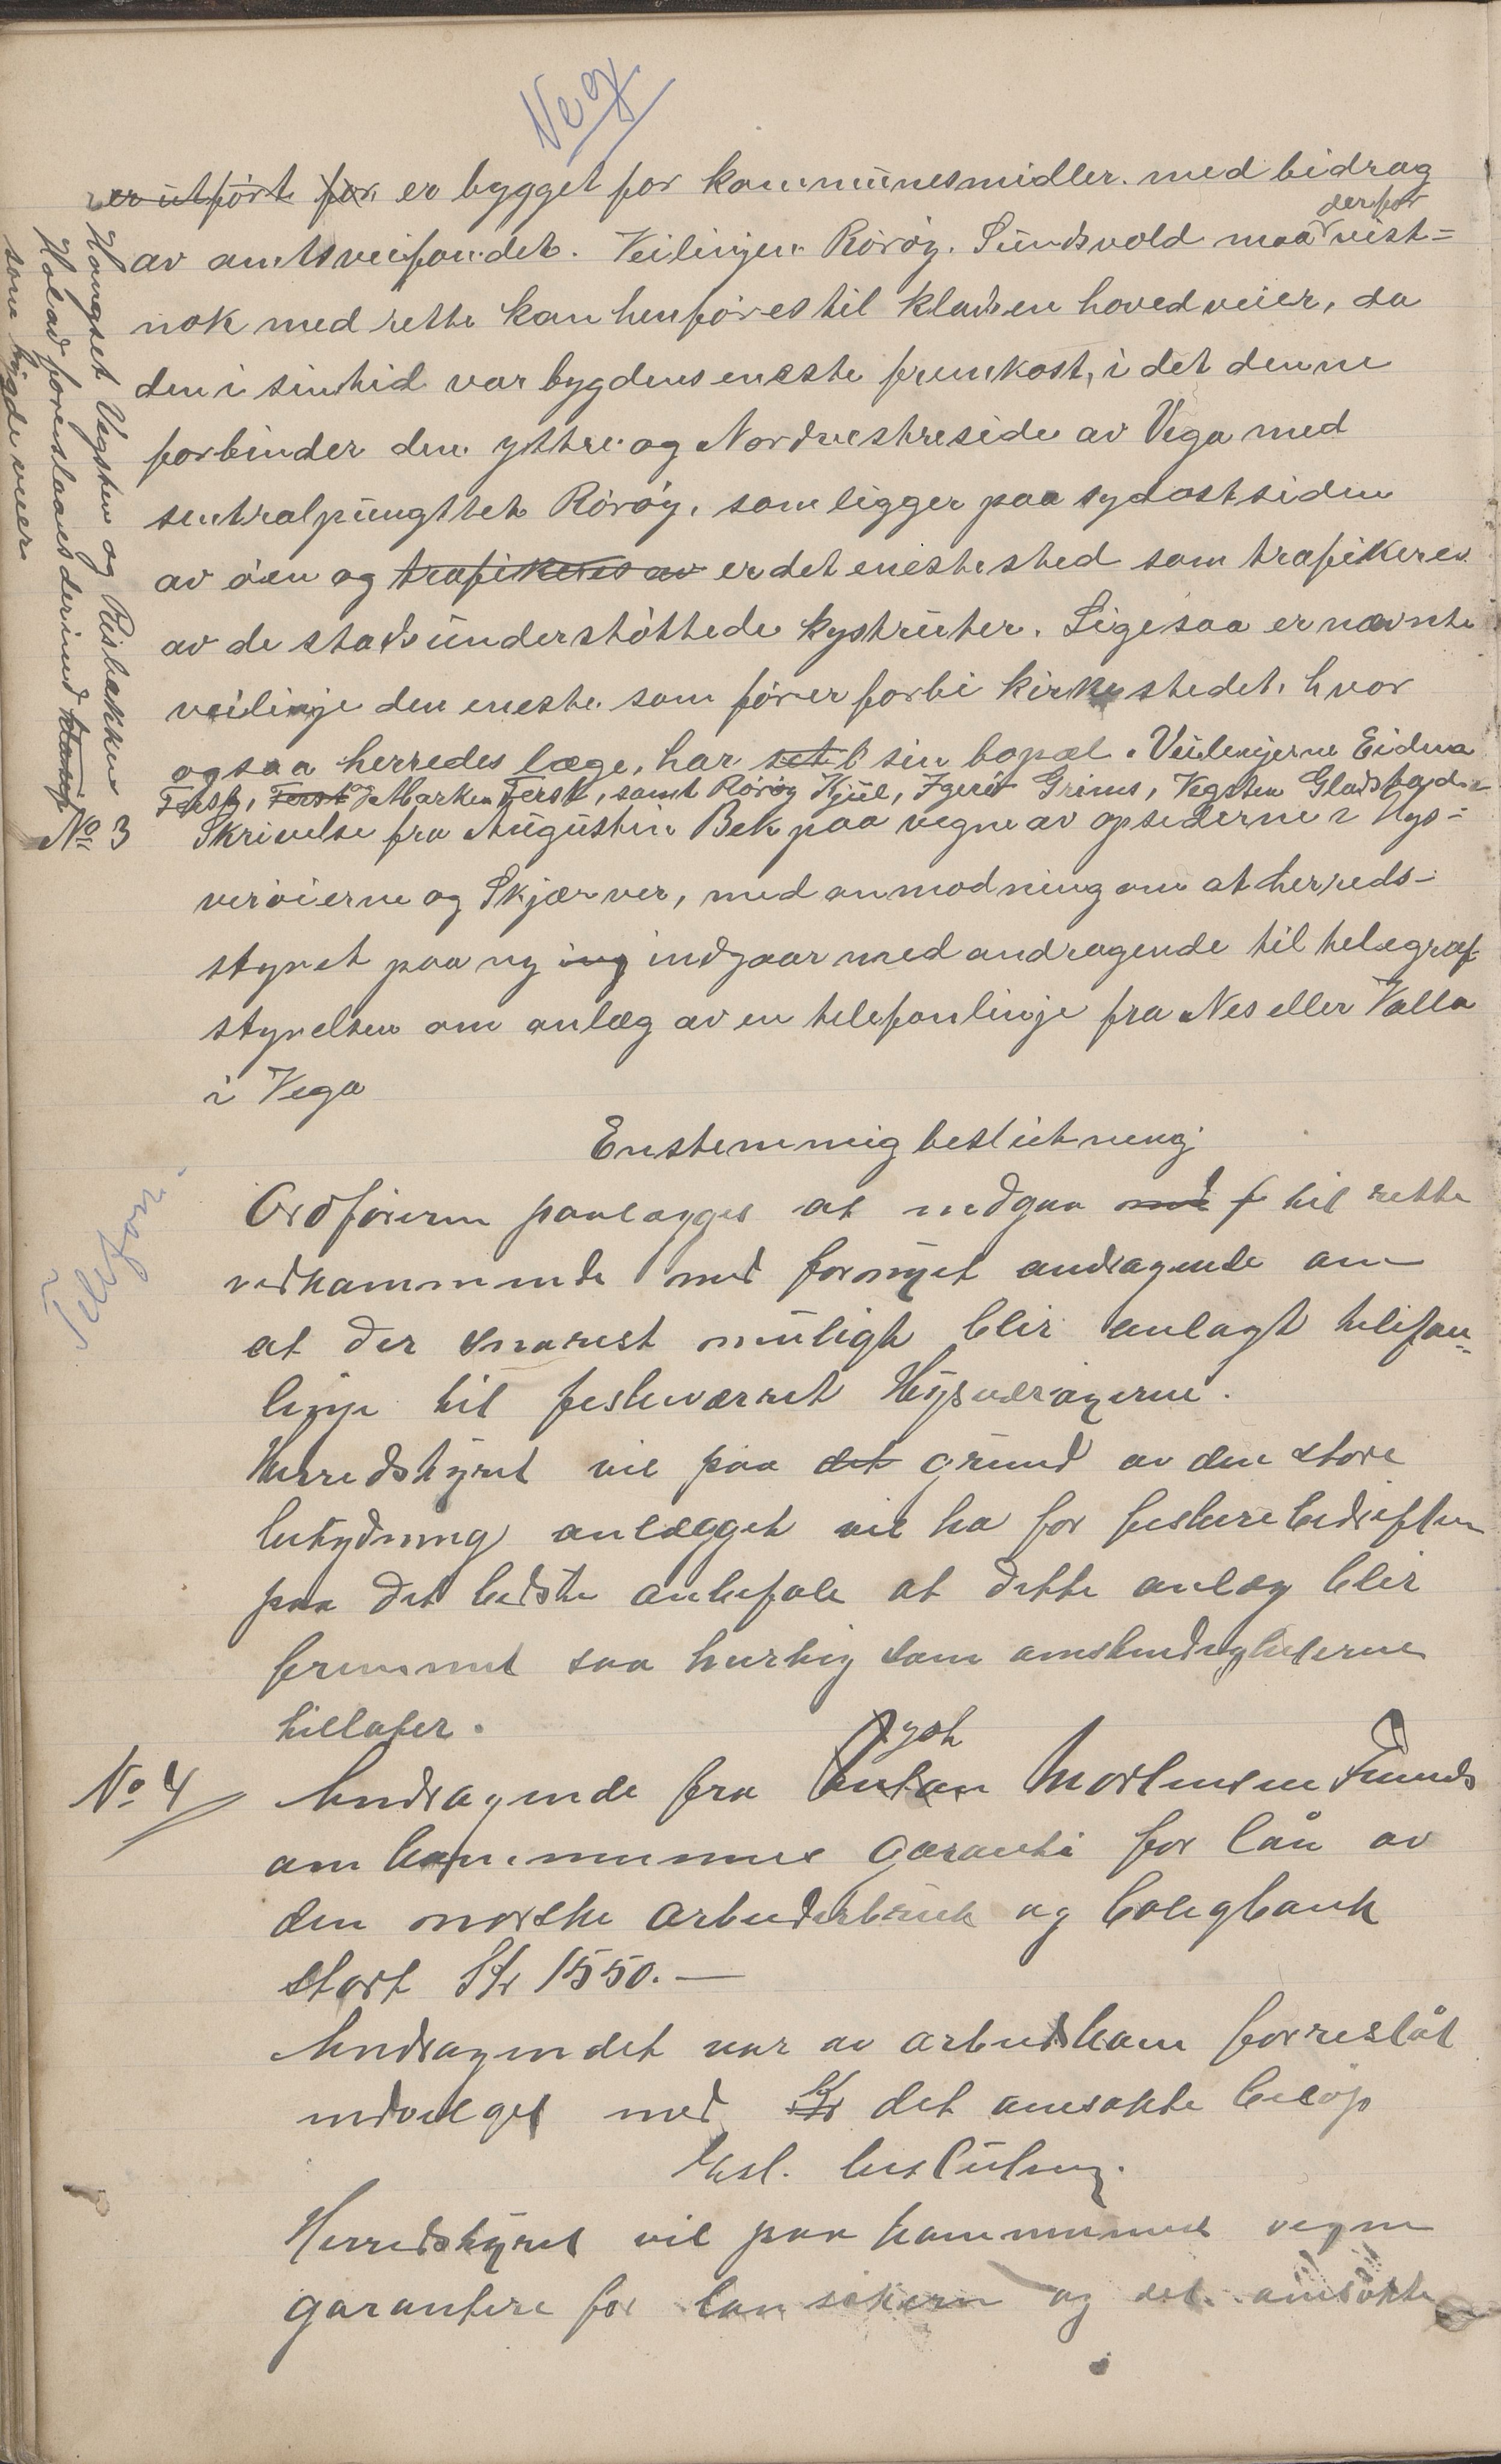 Veg
er utført for er bygget for kommunesmidler med bidrag
av amtsveifondet. Veilinjen Rørøy. Sundsvold maa derfor vist=
nok med rette kan henføres til klassen hovedveier, da
den i sin tid var bygdens eneste fremkost, i det denne
forbinder den yttre og Nordvestreside av Vega med
sentralpungttet Rørøy, som ligger paa sydostsiden
av öen og trafikeres av er det enestested som trafikeres
av de statsunderstøttede kystruter. Ligesaa er nævnte
veilinje den eneste som förer forbi kirkestedet, hvor
ogsaa herredes læge, har sit sin bopæl. Veilinjerne Eidem
Ferst, Ferst Marken Ferst, samt Rörøy Kjul, Igerö Grims, Vegsten Gladstad
Hongset Vegsten og Risbakken
Holand foreslaaes derimod
som bygdeveier
No 3 Skrivelse fra Augustin Bek paa vegne av opsederne i Hys=
veröierne og Skjærver, med anmodning om at herreds-
styret paa ny ing indgaar med andragende til telegraf-
styrelsen om anlæg av en telefonlinje fra Nes eller Valla
i Vega
Enstemmig beslutning
Telefon.
Ordföreren paalægges at indgaa med f til rette
vedkommende med fornyet andragende om
at der snarest muligt blir anlagt telefon=
linje til fiskeværet Hysværöyerne.
Herredstyret vil paa det grund av den store
betydning anlægget vil ha for fiskeribedriften
paa det bedste anbefale at dette anlæg blir
fremmet saa hurtig som omstendigheterne
tillater.
No 4 Andragende fra Anton Mortensen Sunds
om kommunens garanti for lån av
den norske arbeiderbruk og boligbank
stort Kr 1550.—
Andragendet var av arbeidskom forreslåt
indvilget med Kr det ansøkte beløp
Enst. beslutning.
Herredstyret vil paa kommunens vegne
garantere for lansøkeren og det ansøkte